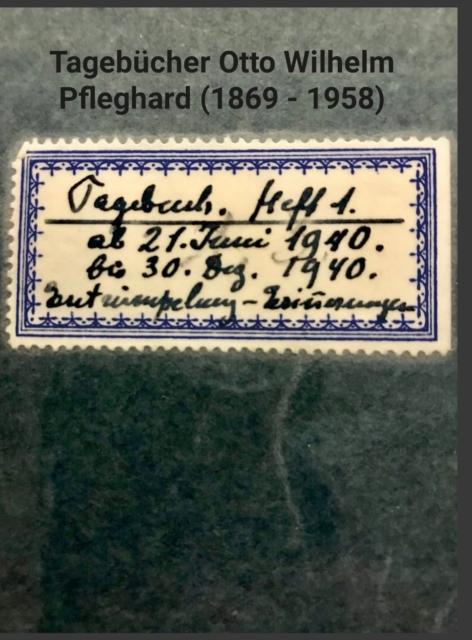 Tagebücher Otto Wilhelm
Pfleghard (1869 - 1958)
Tagebuch. Heft 1.
ab 21. Juni 1940.
bis 30. Dez. 1940.
Entrümpelung - Erinnerungen